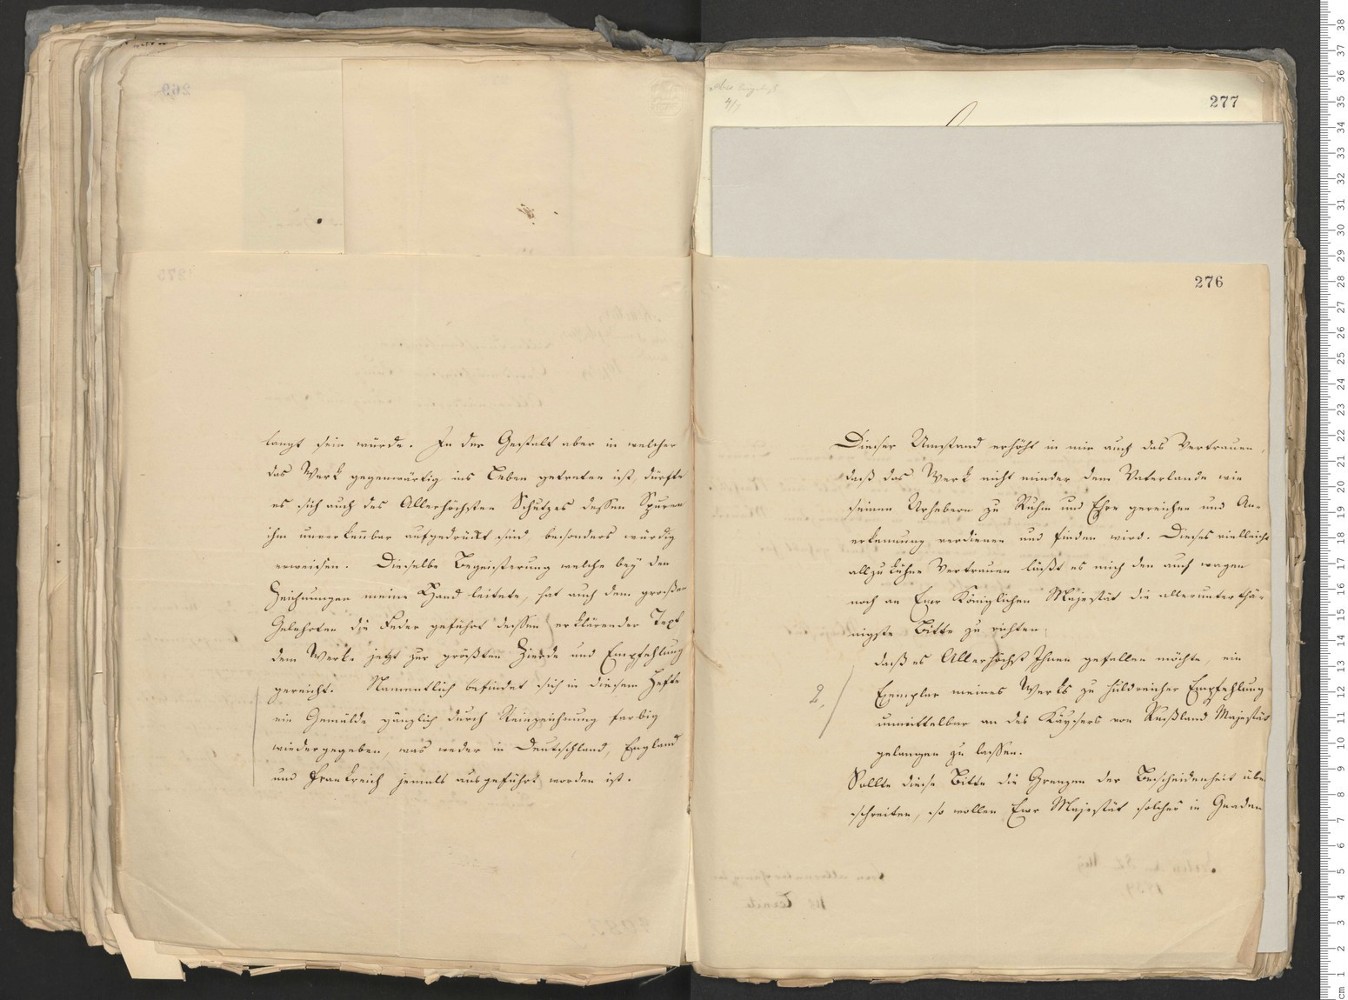 langt sein würde. In der Gestalt aber in welcher
das Werk gegenwärtig ins Leben getreten ist, dürfte
es sich auch des Allerhöchsten Schutzes dessen Spuren
ihm unverkennbar aufgedrückt sind besonders würdig
erweisen. Dieselbe Begeisterung welche bey den
Zeichnungen meine Hand leitete, hat auch dem großen
Gelehrten die Feder geführt dessen erklärender Text
dem Werke jetzt zur größten Zierde und Empfehlung
gereicht. Namentlich befindet sich in diesem Hefte
ein Gemälde gänzlich durch Steinzeichnung farbig
wiedergegeben, was weder in Deutschland, England
und Frankreich jemals ausgeführt worden ist.
277
276
Dieser Umstand erhöht in mir auch das Vertrauen,
daß das Werk nicht minder dem Vaterlande wie
seinen Urhebern zu Ruhm und Ehre gereichen und An-
erkennung verdienen und finden wird. Dieses vielleicht
allzu kühne Vertrauen läßt es mich den auch wagen
noch an Eure Königlichen Majestät die allerunterthä-
nigste Bitte zu richten;
daß es Allerhöchst Ihnen gefallen möchte, ein
2,
Exemplar meines Werks zu huldreicher Empfehlung
unmittelbar an des Kaysers von Rußland Majestät
gelangen zu lassen.
Sollte diese Bitte die Grenzen der Bescheidenheit über
schreiten, so wollen Eure Majestät solches in Gnaden